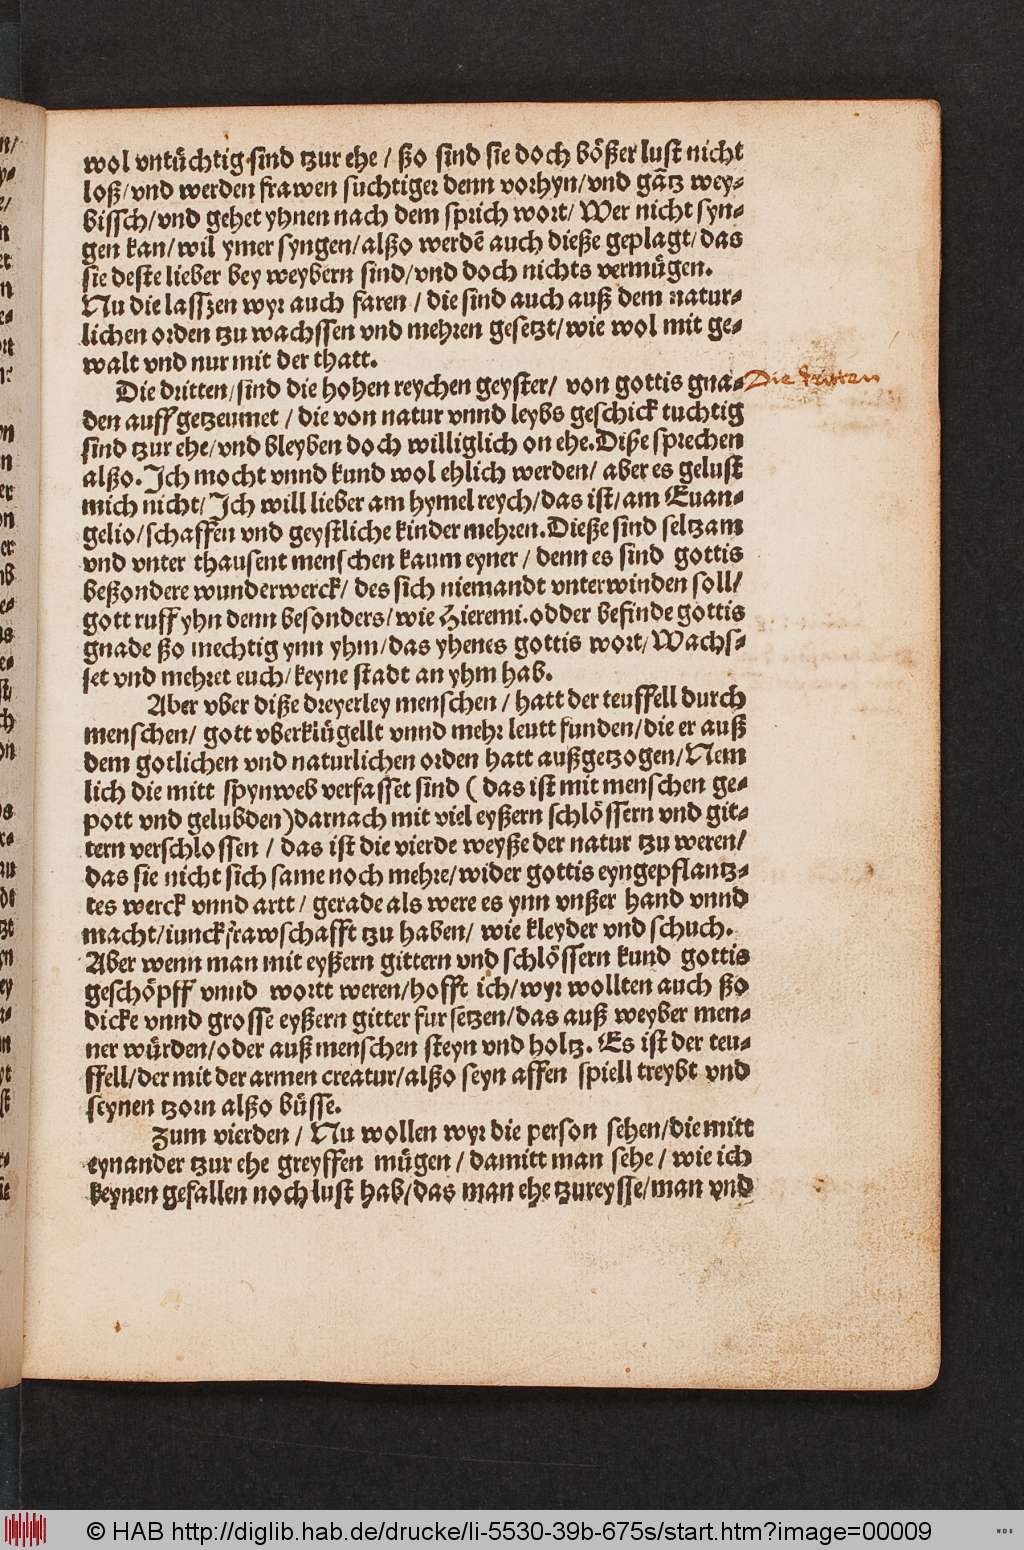 wol vntüchtig sind tzur ehe / ßo sind sie doch bößer lust nicht
loß/vnd werden frawen suchtiger denn vorhyn/vnd gātz wey-
bissch/vnd gehet yhnen nach dem sprich wort/ Wer nicht syn-
gen kan/wil ymer syngen/alßo werdē auch dieße geplagt/das
sie deste lieber bey weybern sind/vnd doch nichts vermügen.
Nu die lasszen wyr auch faren / die sind auch auß dem natur-
lichen orden tzu wachssen vnd mehren gesetzt/wie wol mit ge-
walt vnd nur mit der thatt.
Die dritten/sind die hohen reychen geyster/ von gottis gna- Die dritten
den auff getzeumet / die von natur vnnd leybs geschick tuchtig
sind tzur ehe/vnd bleyben doch williglich on ehe.Diße sprechen
alßo.Ich mocht vnnd kund wol ehlich werden/ aber es gelust
mich nicht/Ich will lieber am hymel reych/das ist/am Euan-
gelio/schaffen vnd geystliche kinder mehren.Dieße sind seltzam
vnd vnter thausent menschen kaum eyner / denn es sind gottis
beßondere wunderwerck/ des sich niemandt vnterwinden soll/
gott ruff yhn denn besonders/wie Hieremi.odder befinde gottis
gnade ßo mechtig ynn yhm/das yhenes gottis wort/Wachs-
set vnd mehret euch/keyne stadt an yhm hab.
Aber vber diße dreyerley menschen / hatt der teuffell durch
menschen/ gott vberklügellt vnnd mehr leutt funden/die er auß
dem gotlichen vnd naturlichen orden hatt außgetzogen/Nem
lich die mitt spynweb verfasset sind ( das ist mit menschen ge-
pott vnd gelubden)darnach mit viel eyßern schlössern vnd git-
tern verschlossen / das ist die vierde weyße der natur tzu weren/
das sie nicht sich same noch mehre/wider gottis eyngepflantz-
tes werck vnnd artt / gerade als were es ynn vnßer hand vnnd
macht/iunckfrawschafft tzu haben/ wie kleyder vnd schuch.
Aber wenn man mit eyßern gittern vnd schlössern kund gottis
geschöpff vnnd wortt weren/hofft ich/wyr wollten auch ßo
dicke vnnd grosse eyßern gitter fur setzen/das auß weyber men-
ner würden/oder auß menschen steyn vnd holtz. Es ist der teu-
ffell/der mit der armen creatur/alßo seyn affen spiell treybt vnd
seynen tzorn alßo büsse.
Zum vierden / Nu wollen wyr die person sehen/die mitt
eynander tzur ehe greyffen mügen / damitt man sehe / wie ich
keynen gefallen noch lust hab/das man ehe tzureysse/man vnd
© HAB http://diglib.hab.de/drucke/li-5530-39b-675s/start.htm?image=00009